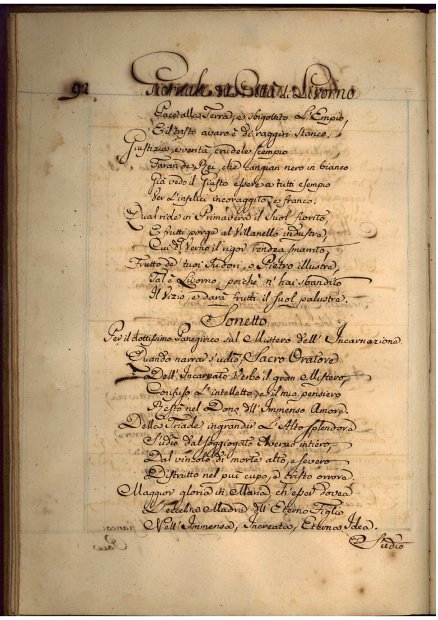 92 Giornale di Città di Livorno
Pace alla Terra, e sbigottito l'Empio,
E il tristo avaro è di raggiri stanco.
Giustizia, e verità crudele scempio
Faran de Rei, che cangian nero in bianco
Già vedo il Giusto essere a tutti esempio
Per l'infelici incoraggito, e franco.
Qual ride in Primavera il Suol fiorito,
E frutti porge al Villanello industre
Cui di Verno il rigor rendea smarrito,
Frutto de' tuoi Sudori, o Pietro illustre,
Tal è Livorno, poichè n'hai sbandito
Il Vizio, e darà frutti il suol palustre.
Sonetto
Per il dottissimo Panegirico sul Mistero dell'Incarnazione.
Quando narrar s'udìo, Sacro Oratore
Dell'Increato Verbo il gran Mistero,
Confuso l'intelletto, e il mio pensiero
Restò nel Dono dell'Immenso Amore.
Della Triade ingrandir l'Alto splendore
S'udìo dal soggiogato Averno intiero,
Dal vincolo di morte alto, e severo
Distrutto nel più cupo, e tristo orrore
Maggior gloria di Maria ch'esser dovea
L'eccelsa Madre dell'Eterno Figlio
Nell'Immensa, Increata, Eterna Idea.
Studio